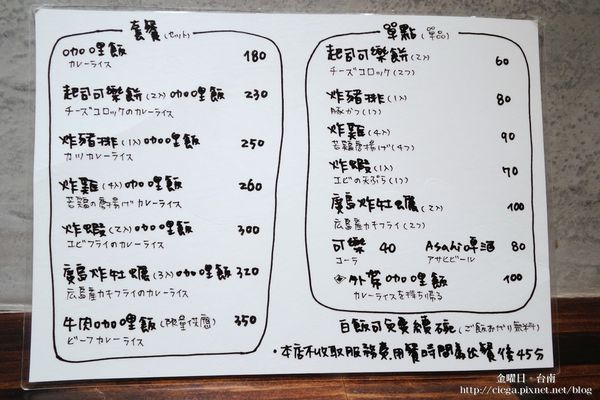 套餐(セット)
咖哩飯 180
カレーライス
起司可樂餅(2入)咖哩飯 230
チーズコロッケのカレーライス
炸豬排(1入)咖哩飯 250
カツカレーライス
炸雞(4入)咖哩飯 260
若鶏の唐揚げカレーライス
炸蝦(2入)咖哩飯 300
エビフライのカレーライス
廣島炸牡蠣(3入)咖哩飯 320
広島産カキフライのカレーライス
牛肉咖哩飯(限量供應) 350
ビーフカレーライス
單點(単品)
起司可樂餅(2入) 60
チーズコロッケ(2つ)
炸豬排(1入) 80
豚かつ(1つ)
炸雞(4入) 90
若鶏唐揚げ(4つ)
炸蝦(1入) 70
エビの天ぷら(1つ)
廣島炸牡蠣(2入) 100
広島産カキフライ(2つ)
可樂 40 Asahi啤酒 80
コーラ アサヒビール
外帶咖哩飯 100
カレーライスを持ち帰る
白飯可免費續碗(ご飯おかわり無料)
・本店不收取服務費,用餐時間為出餐後45分
金曜日。台南
http://ciega.pixnet.net/blog